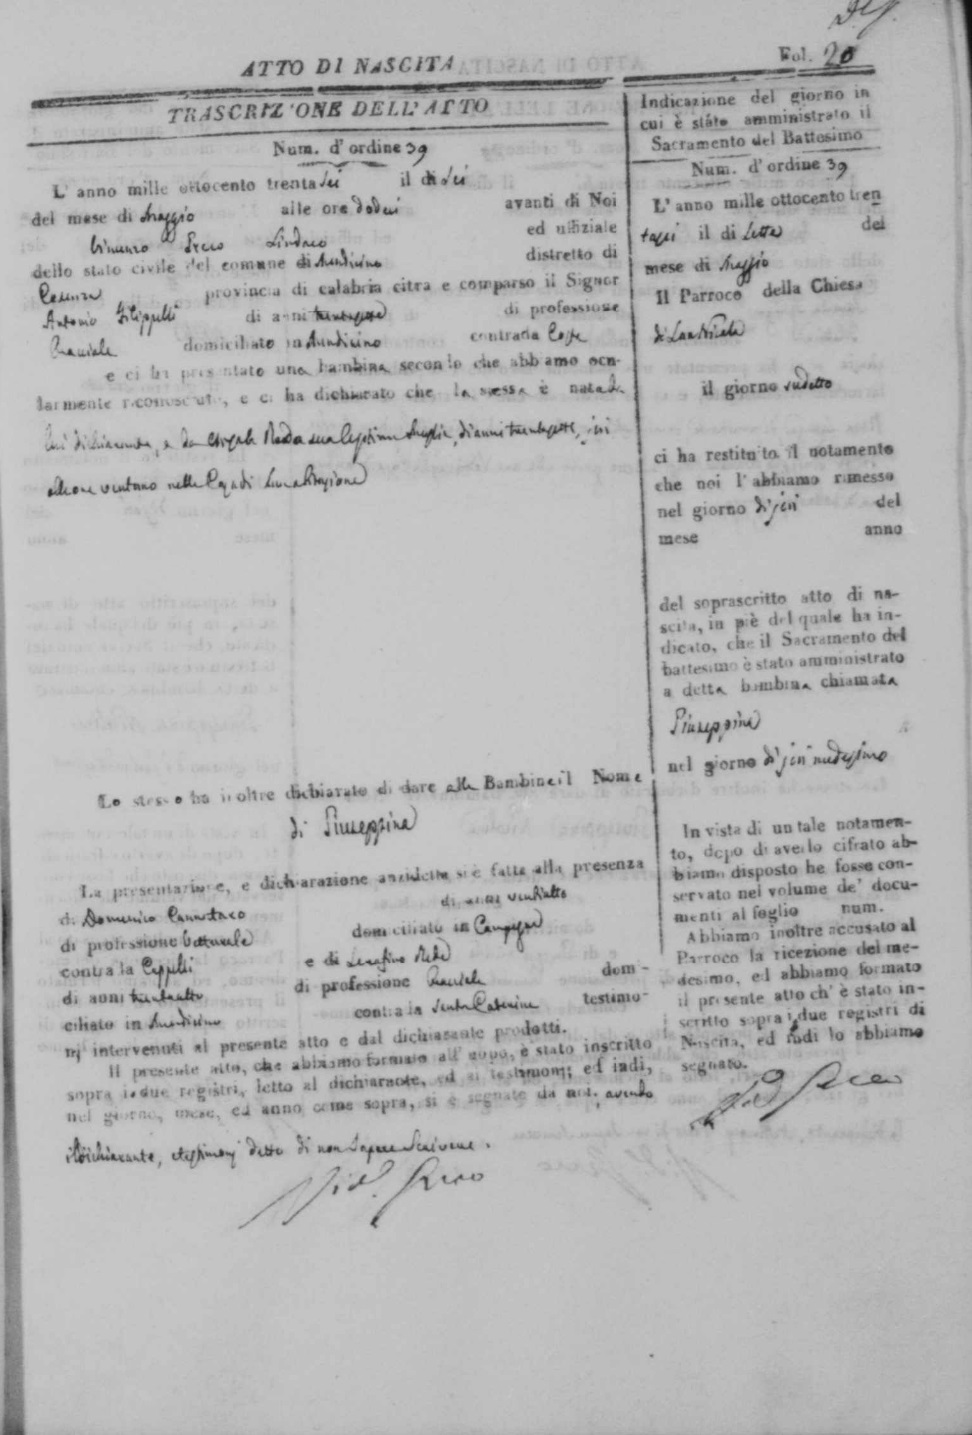 Fol. 20
ATTO DI NASCITA
TRASCRIZIONE DELL'ATTO
Num. d'ordine 39
L'anno mille ottocento trentasei il di sei
del mese di Maggio alle ore dodeci avanti di Noi
Vincenzo Greco Sindaco ed uffiziale
dello stato civile del comune di Mendicino distretto di
Cosenza provincia di calabria citra e comparso il Signor
Antonio Filippelli di anni di professione
Bracciale domiciliato in Mendicino contrada
e ci ha presentato una bambina secondo che abbiamo ocu-
larmente riconosciuto, e ci ha dichiarato che la stessa è nata da
lui dichiarante, e da sua legitima Moglie, di anni trentasette, jeri
alle ore ventuno nella Casa di sua abitazione
Lo stesso ha inoltre dichiarato di dare alla Bambina il Nome
di Giuseppina
La presentazione, e dichiarazione anzidetta si è fatta alla presenza
di Domenico di anni ventiotto
di professione domiciliato in
contrada e di Serafino
di anni trentaotto di professione Bracciale domi-
ciliato in Mendicino contrada Santa Caterina testimo-
nj intervenuti al presente atto e dal dichiarante prodotti.
Il presente atto, che abbiamo formato all'uopo, è stato inscritto
sopra i due registri, letto al dichiarante, ed ai testimonj; ed indi,
nel giorno, mese, ed anno come sopra, si è segnato da noi, avendo
il dichiarante, e testimonj detto di non sapere scrivere.
Greco
Indicazione del giorno in
cui è stato amministrato il
Sacramento del Battesimo
Num. d'ordine 39
L'anno mille ottocento tren
tasei il di sette del
mese di Maggio
Il Parroco della Chiesa
di San Nicola
il giorno sudetto
ci ha restituito il notamento
che noi l'abbiamo rimesso
nel giorno di jeri del
mese anno
del soprascritto atto di na-
scita, in piè del quale ha in-
dicato, che il Sacramento del
battesimo è stato amministrato
a detta bambina chiamata
Giuseppina
nel giorno di jeri medesimo
In vista di un tale notamen-
to, dopo di averlo cifrato ab-
biamo disposto he fosse con-
servato nel volume de' docu-
menti al foglio num.
Abbiamo inoltre accusato al
Parroco la ricezione del me-
desimo, ed abbiamo formato
il presente atto ch'è stato in-
scritto sopra i due registri di
Nascita, ed indi lo abbiamo
segnato.
Greco